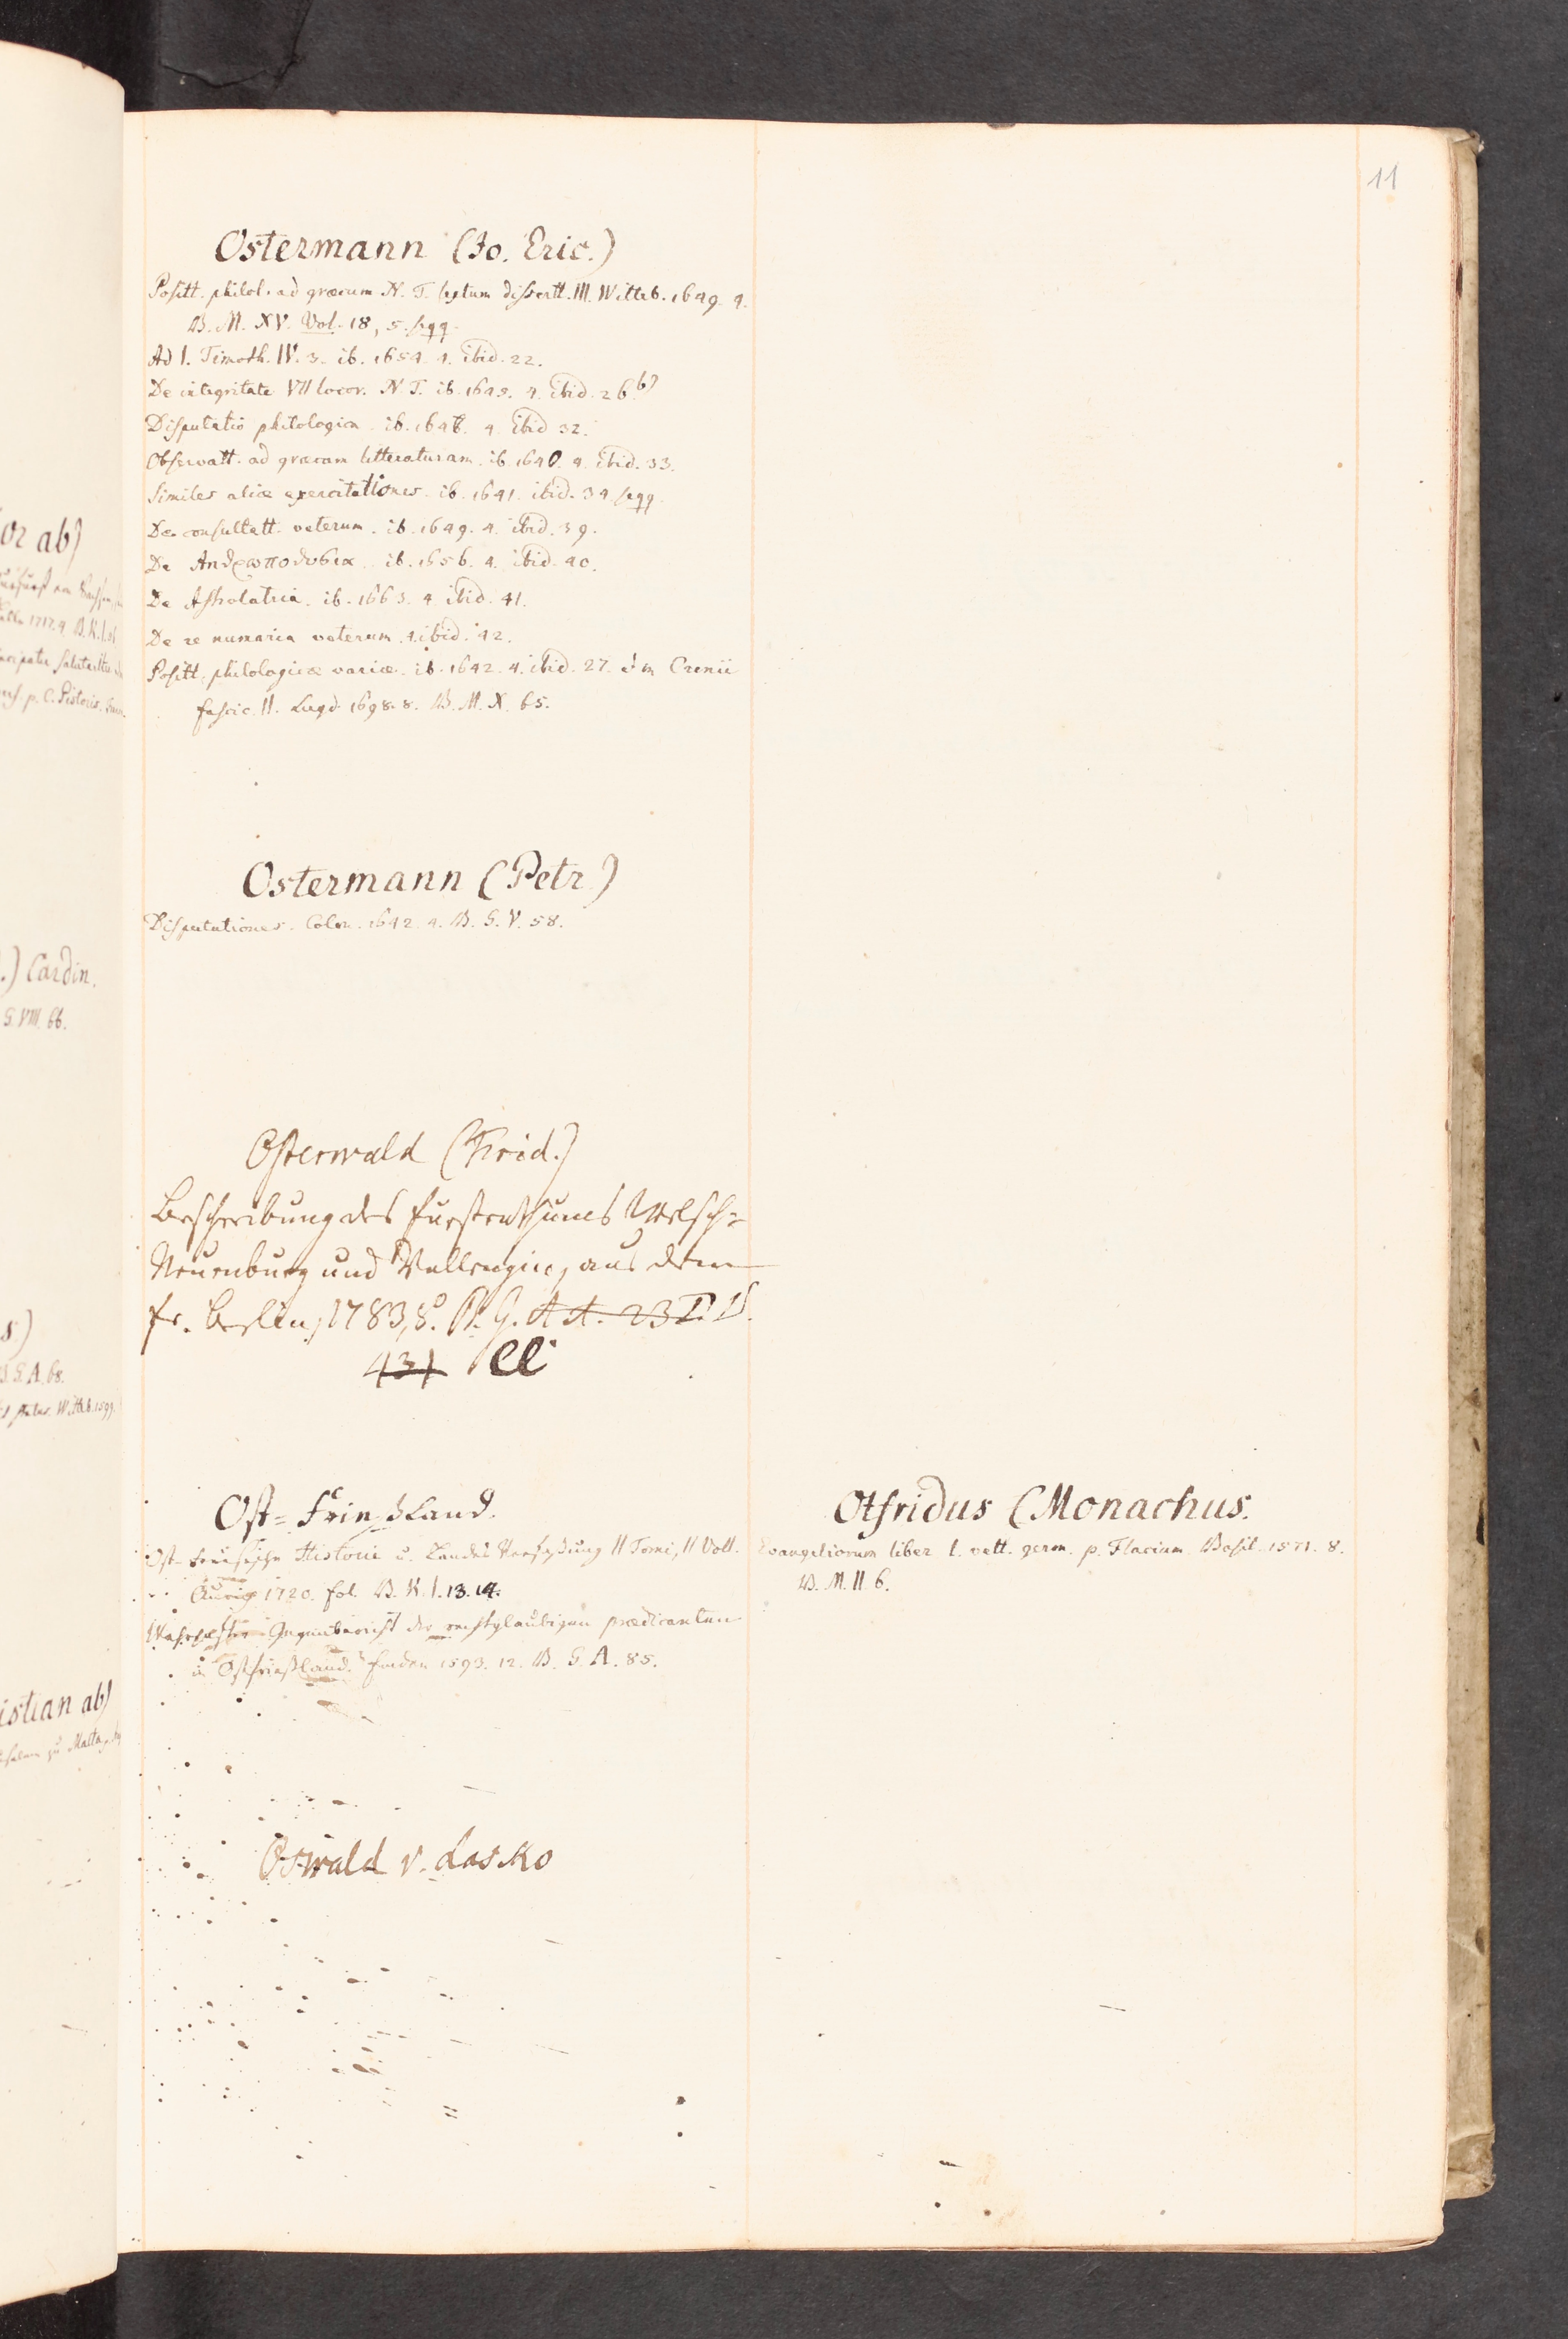 11
Ostermann (Jo. Eric.)
Positt. philol. ad græcum N. T. septum dissertt. III. Witteb. 1649. 4.
B. M. XV. Vol. 18, 5. seqq.
Ad I. Timoth. IV. 3. ib. 1654. 4. ibid. 22.
De integritate VII locor. N. T. ib. 1645. 4. ibid. 26.b)
Disputatio philologica. ib. 1646. 4. ibid 32.
Observatt. ad græcam litteraturam. ib. 1640. 4. ibid. 33.
Similes aliæ exercitationes. ib. 1641. ibid. 34. seqq.
De consultatt. veterum. ib. 1649. 4. ibid. 39.
De ib. 1656. 4. ibid. 40.
De Astrolatria. ib. 1663. 4. ibid. 41.
De re numaria veterum. 4. ibid. 42.
Positt. philologicæ variæ. ib. 1642. 4. ibid. 27. & in Crenii
fascic. II. Lugd. 1698. 8. B. M. X. 65.
Ostermann (Petr.)
Disputationes. Colon. 1642. 4. B. G. V. 58.
Osterwald (Frid.)
Beschreibung des Fürstenthums Welsch=
Neuenburg und Vallengin, aus dem
fr. Berlin, 1783, 8º. B. G. A A. 23 I. B.
431 CC
Ost=Frießland.
Ost-Friesische Historie u. Landes Verfaßung II Tomi, II Voll.
Aurich 1720. fol. B. K. I. 13. 14.
Wahrhafter Gegenbericht der rechtglaubigen prædicanten
in Ostfrießland. Emden 1593. 12. B. G. A. 85.
Oswald v. Lasko
Otfridus (Monachus.
Evangeliorum liber l. vett. germ. p. Flacium. Basil. 1571. 8.
B. M. II. 6.
or ab)
.) Cardin.
G. VIII. 66.
s.)
B. G. A. 68.
istian ab)